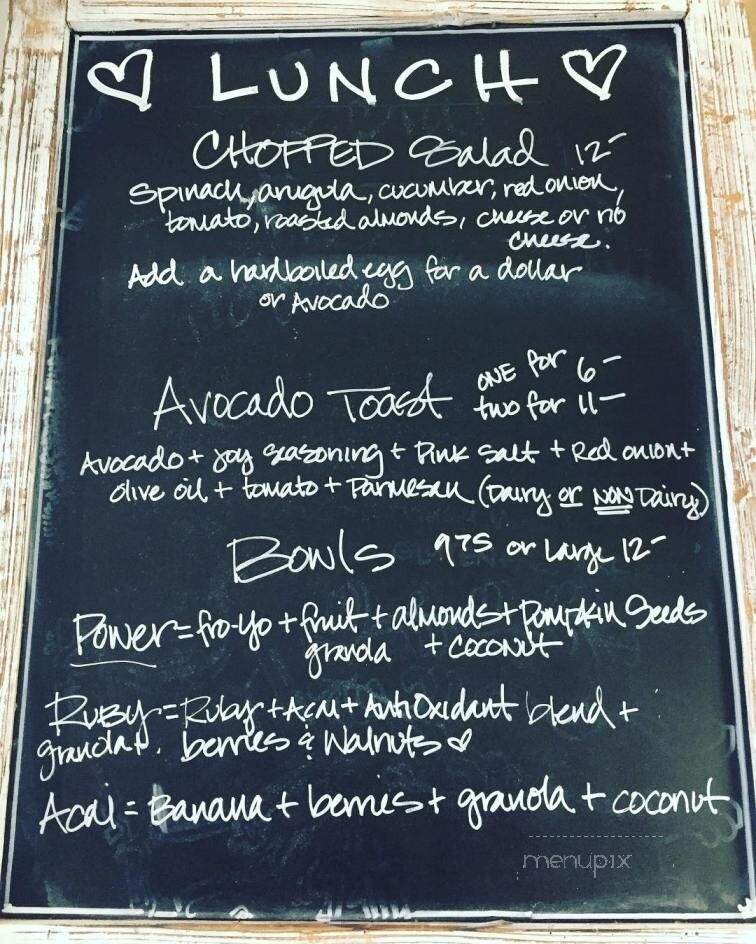 ♡ LUNCH ♡
CHOPPED Salad 12-
Spinach, arugula, cucumber, red onion,
tomato, roasted almonds, cheese or no
cheese.
Add a hardboiled egg for a dollar
or Avocado
Avocado Toast ONE for 6-
two for 11-
Avocado + joy seasoning + Pink Salt + Red onion +
olive oil + tomato + Parmesan (Dairy or NON Dairy)
Bowls 975 or Large 12-
Power = fro-yo + fruit + almonds + Pumpkin Seeds
granola + coconut
Ruby = Ruby + Acai + AntiOxidant blend +
granola + berries & Walnuts ♡
Acai = Banana + berries + granola + coconut
menupix